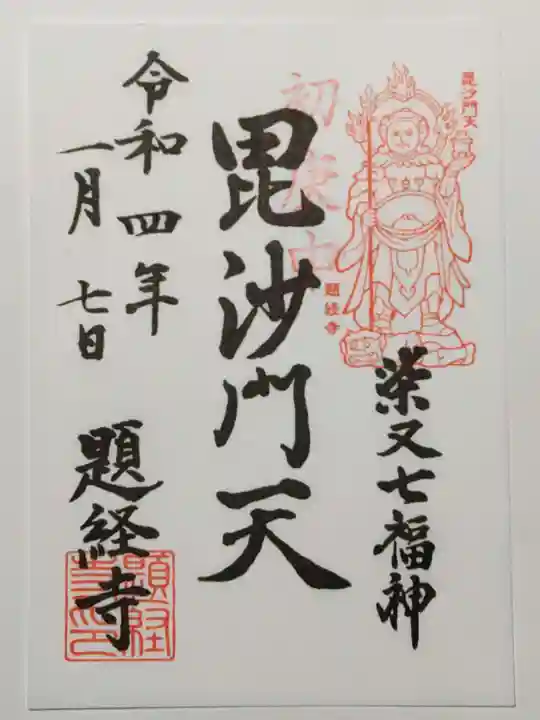 毘沙門天
題経寺
柴又七福神
初庚申
毘沙門天
令和四年
一月七日
題経寺
題経寺印